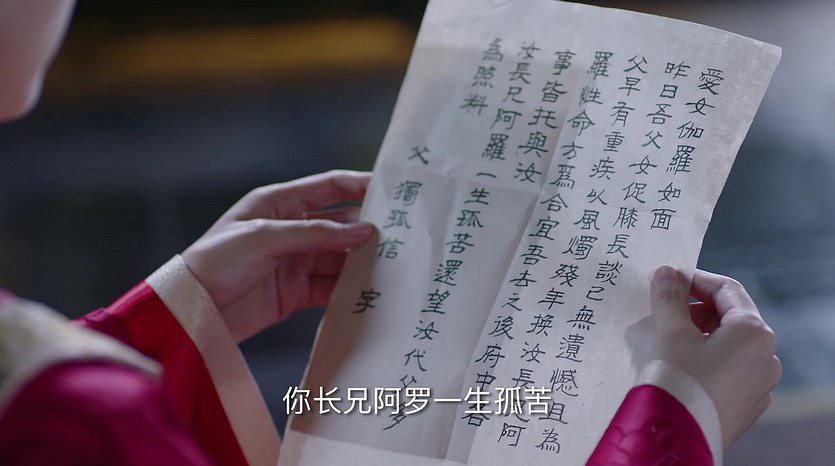 愛女伽羅如面
昨日吾父女促膝長談已無遺憾且為
父早有重疾以風燭殘年換汝長兄阿
羅性命方為合宜吾去之後府中各
事皆托與汝
汝長兄阿羅一生孤苦還望汝代父多
為照料
父 獨孤信 字
你长兄阿罗一生孤苦